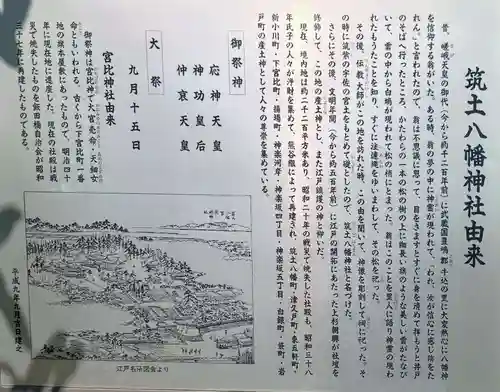 筑土八幡神社由来
昔、嵯峨天皇の御代（今から約千二百年前）に武蔵国豊嶋郡牛込の里に大変熱心に八幡神
を信仰する翁がいた。ある時、翁の夢の中に神霊が現われて、「われ、汝が信心に感じ跡をた
れん。」と言われたので、翁は不思議に思って、目をさますとすぐに身を清めて拝もうと井戸
のそばへ行ったところ、かたわらの一本の松の樹の上に細長い旗のような美しい雲がたなび
いて、雲の中から白鳩が現われて松の梢にとまった。翁はこのことを里人に語り神霊の現わ
れたもうたことを知り、すぐに注連縄をゆいまわして、その松を祀った。
その後、伝教大師がこの地を訪れた時、この由を聞いて、神像を彫刻して祠に祀った。そ
の時に筑紫の宇佐の宮土をもとめて礎としたので、筑土八幡神社と名づけた。
さらにその後、文明年間（今から約五百年前）に江戸の開拓にあたった上杉朝興が社壇を
修飾して、この地の産土神とし、また江戸鎮護の神と仰いだ。
現在、境内地は約二千二百平方米あり、昭和二十年の戦災で焼失した社殿も、昭和三十八
年氏子の人々が浄財を集めて、熊谷組によって再建され、筑土八幡町・津久戸町・東五軒町・
新小川町・下宮比町・揚場町・神楽河岸・神楽坂四丁目・神楽坂五丁目・白銀町・袋町・岩
戸町の産土神として人々の尊崇を集めている。
御祭神
応神天皇
神功皇后
仲哀天皇
大祭
九月十五日
宮比神社由来
御祭神は宮比神で大宮売命・天鈿女
命ともいわれる。古くから下宮比町一番
地の旗本屋敷にあったもので、明治四十
年に現在地に遷座した。現在の社殿は戦
災で焼失したものを飯田橋自治会が昭和
三十七年に再建したものである。
平成九年九月吉日建之
江戸名所図会より